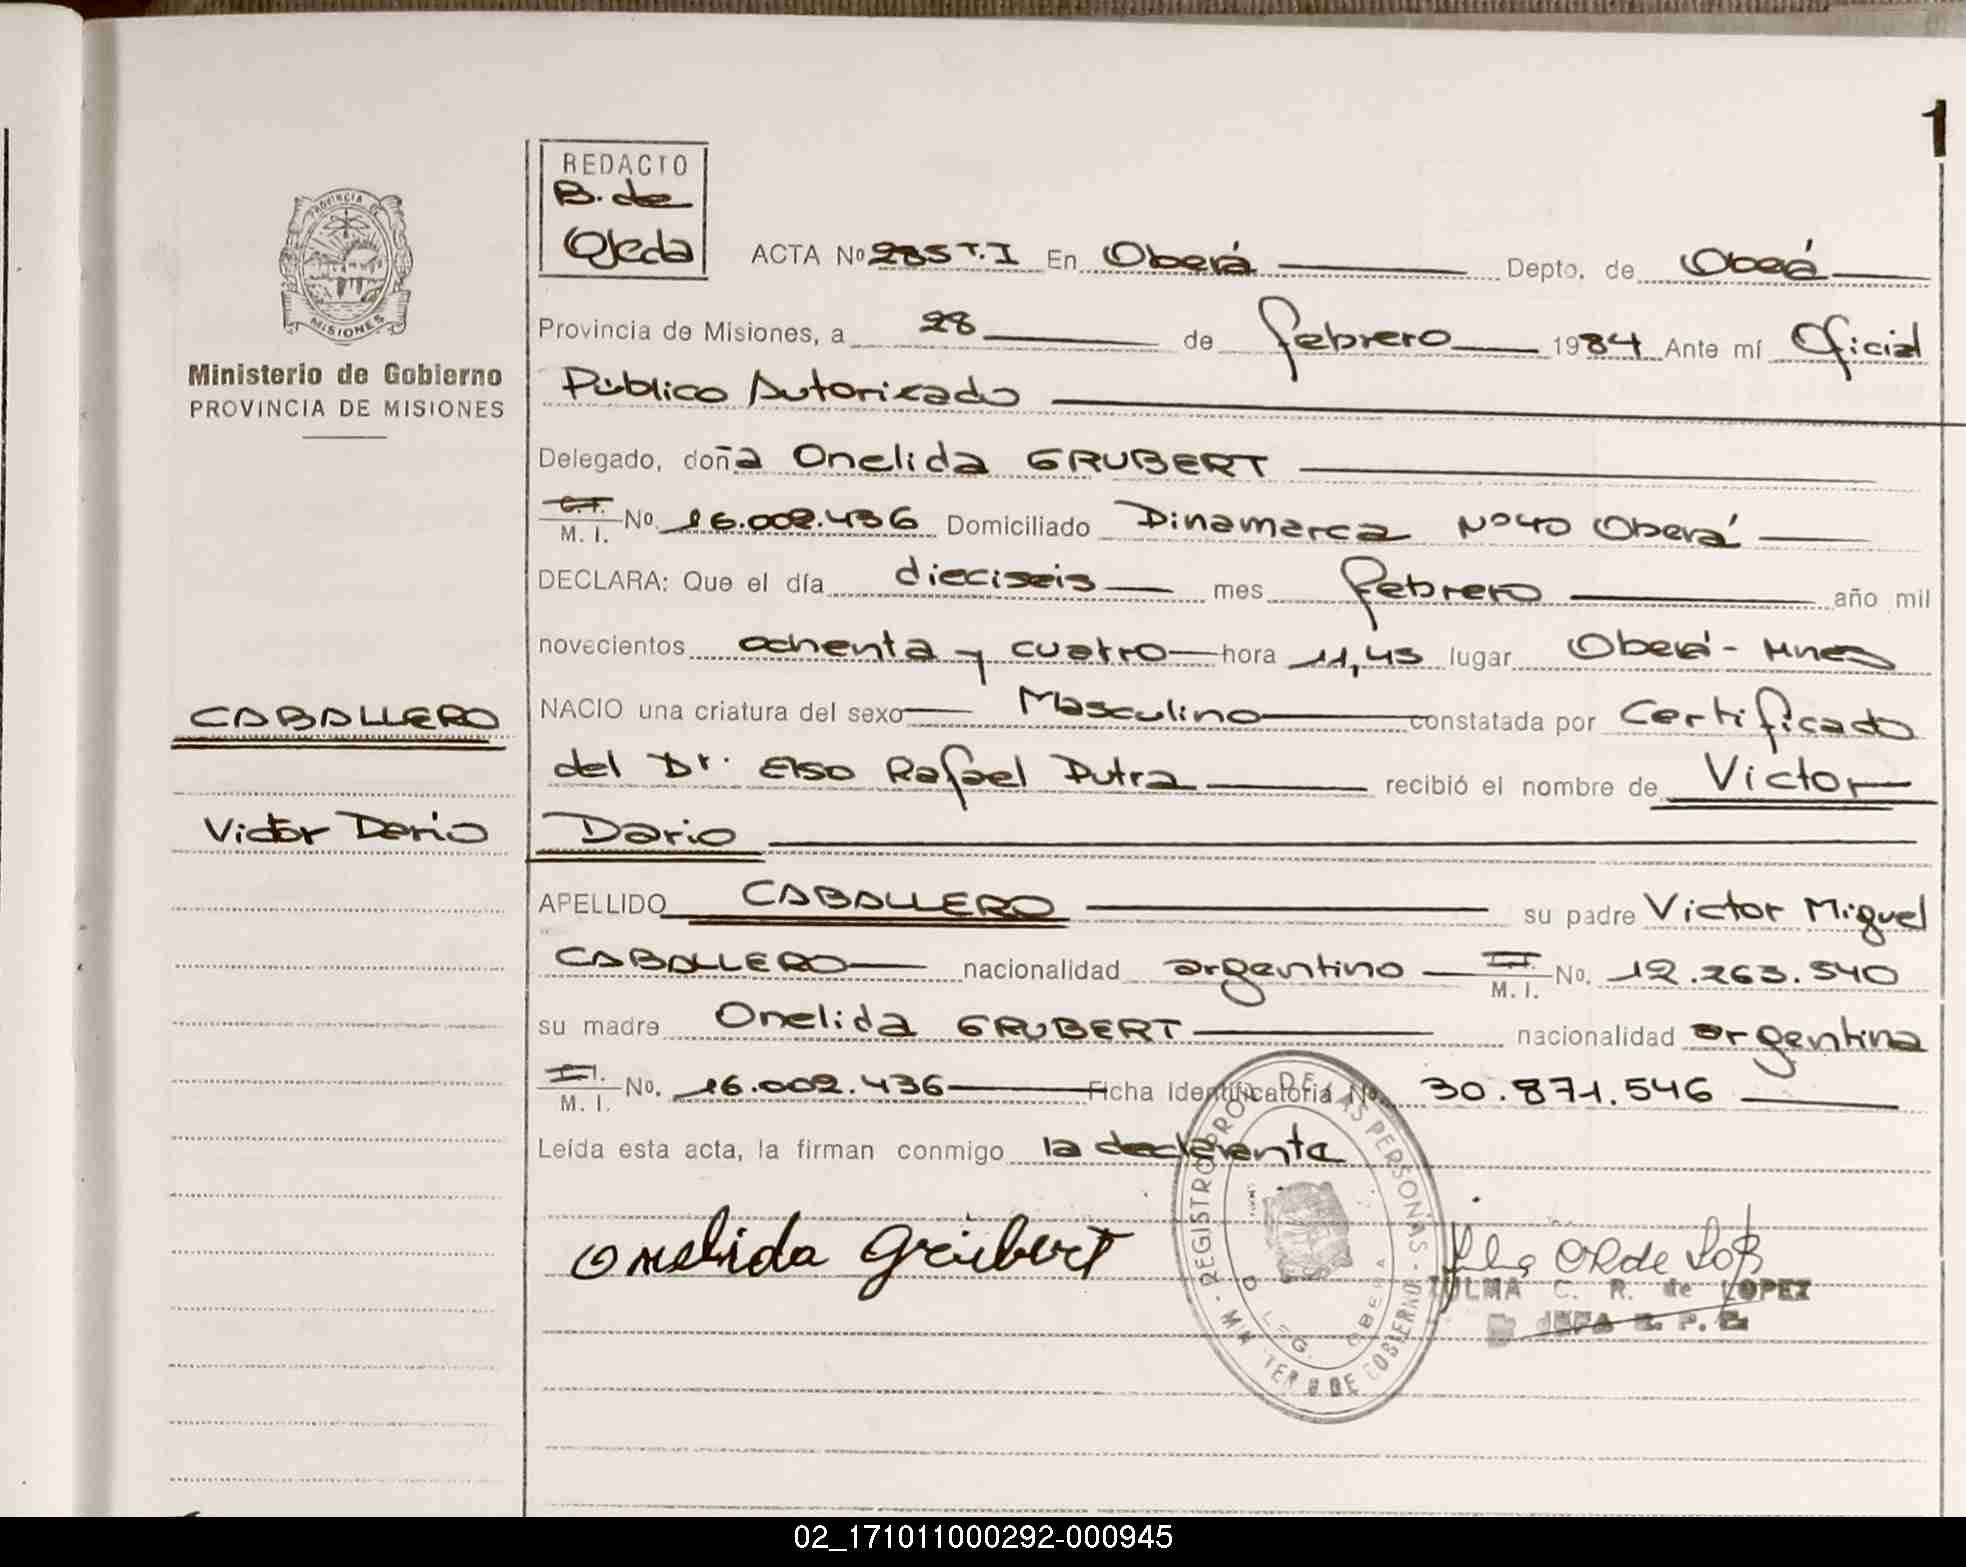 1
REDACTO
B. de
Ojeda
PROVINCIA DE
MISIONES
Ministerio de Gobierno
PROVINCIA DE MISIONES
CABALLERO
Victor Dario
ACTA Nº 285 T.I En Oberá Depto. de Oberá
Provincia de Misiones, a 28 de febrero 1984 Ante mí Oficial
Público Autorizado
Delegado, doña Onelida GRUBERT
C.I. M. I. No. 16.002.436 Domiciliado Dinamarca Nº 40 Oberá
DECLARA: Que el día dieciseis mes febrero año mil
novecientos ochenta y cuatro hora 11,45 lugar Oberá - Mnes
NACIO una criatura del sexo Masculino constatada por Certificado
del Dr. Elso Rafael Dutra recibió el nombre de Victor
Dario
APELLIDO CABALLERO su padre Victor Miguel
CABALLERO nacionalidad argentino M. I. No. 12.263.540
su madre Onelida GRUBERT nacionalidad argentina
M. I. No. 16.002.436 Ficha Identificatoria No. 30.871.546
Leída esta acta, la firman conmigo la declarante
Onelida Grubert
REGISTRO PROV. DE LAS PERSONAS
DELEG. OBERA
ZULMA C. R. de LOPEZ
JEFA
02_171011000292-000945